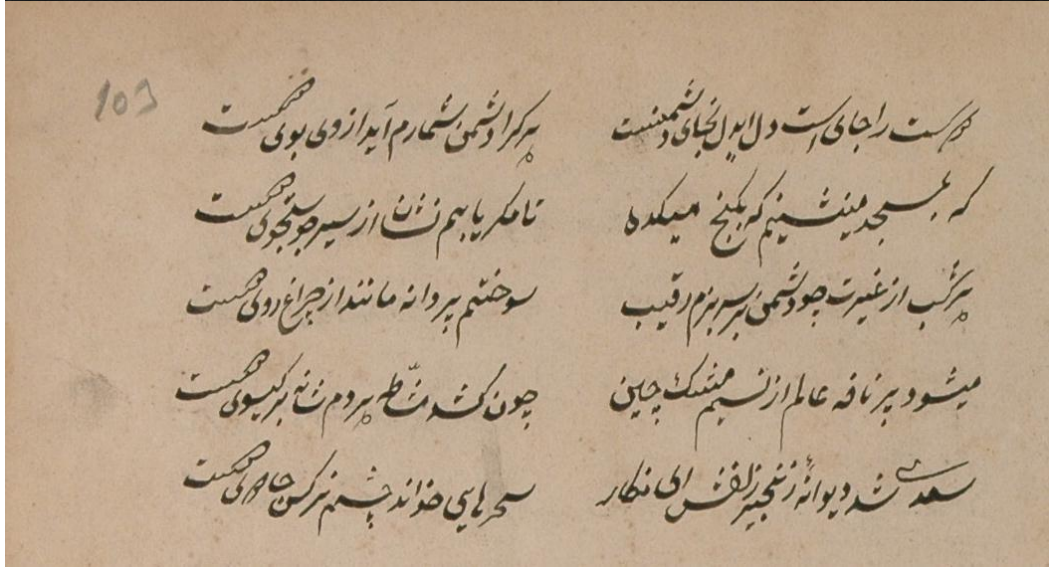 دوست را جای است دل ایدل بجای دشمنیست هرکرا دشمن شمارم آید از وی بوی دوست
که بمسجد مینشینم که بکنج میکده تا مکر یابم نشان از سیر جستجوی دوست
هر شب از غیرت چو دشمن بر سر بزم رقیب سوختم پروانه مانند از چراغ روی دوست
میشود پر نافه عالم از نسیم مشک چین چون کشد مشاطه هردم شانه بر کیسوی دوست
سعدی شد دیوانهٔ زنجیر زلفش ای نکار سحرهایی خواند چشم نرکس جادوی دوست
103